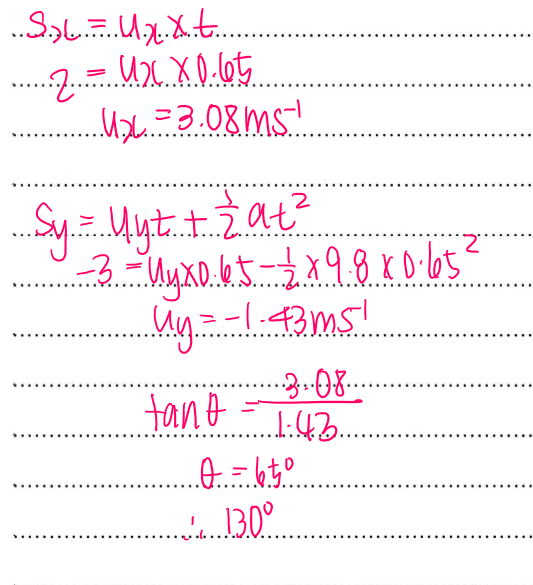 Sx = Ux × t
2 = Ux × 0.65
Ux = 3.08 ms⁻¹
Sy = Uyt + ½ at²
-3 = Uy × 0.65 - ½ × 9.8 × 0.65²
Uy = -1.43 ms⁻¹
tan θ = 3.08/1.43
θ = 65°
∴ 130°